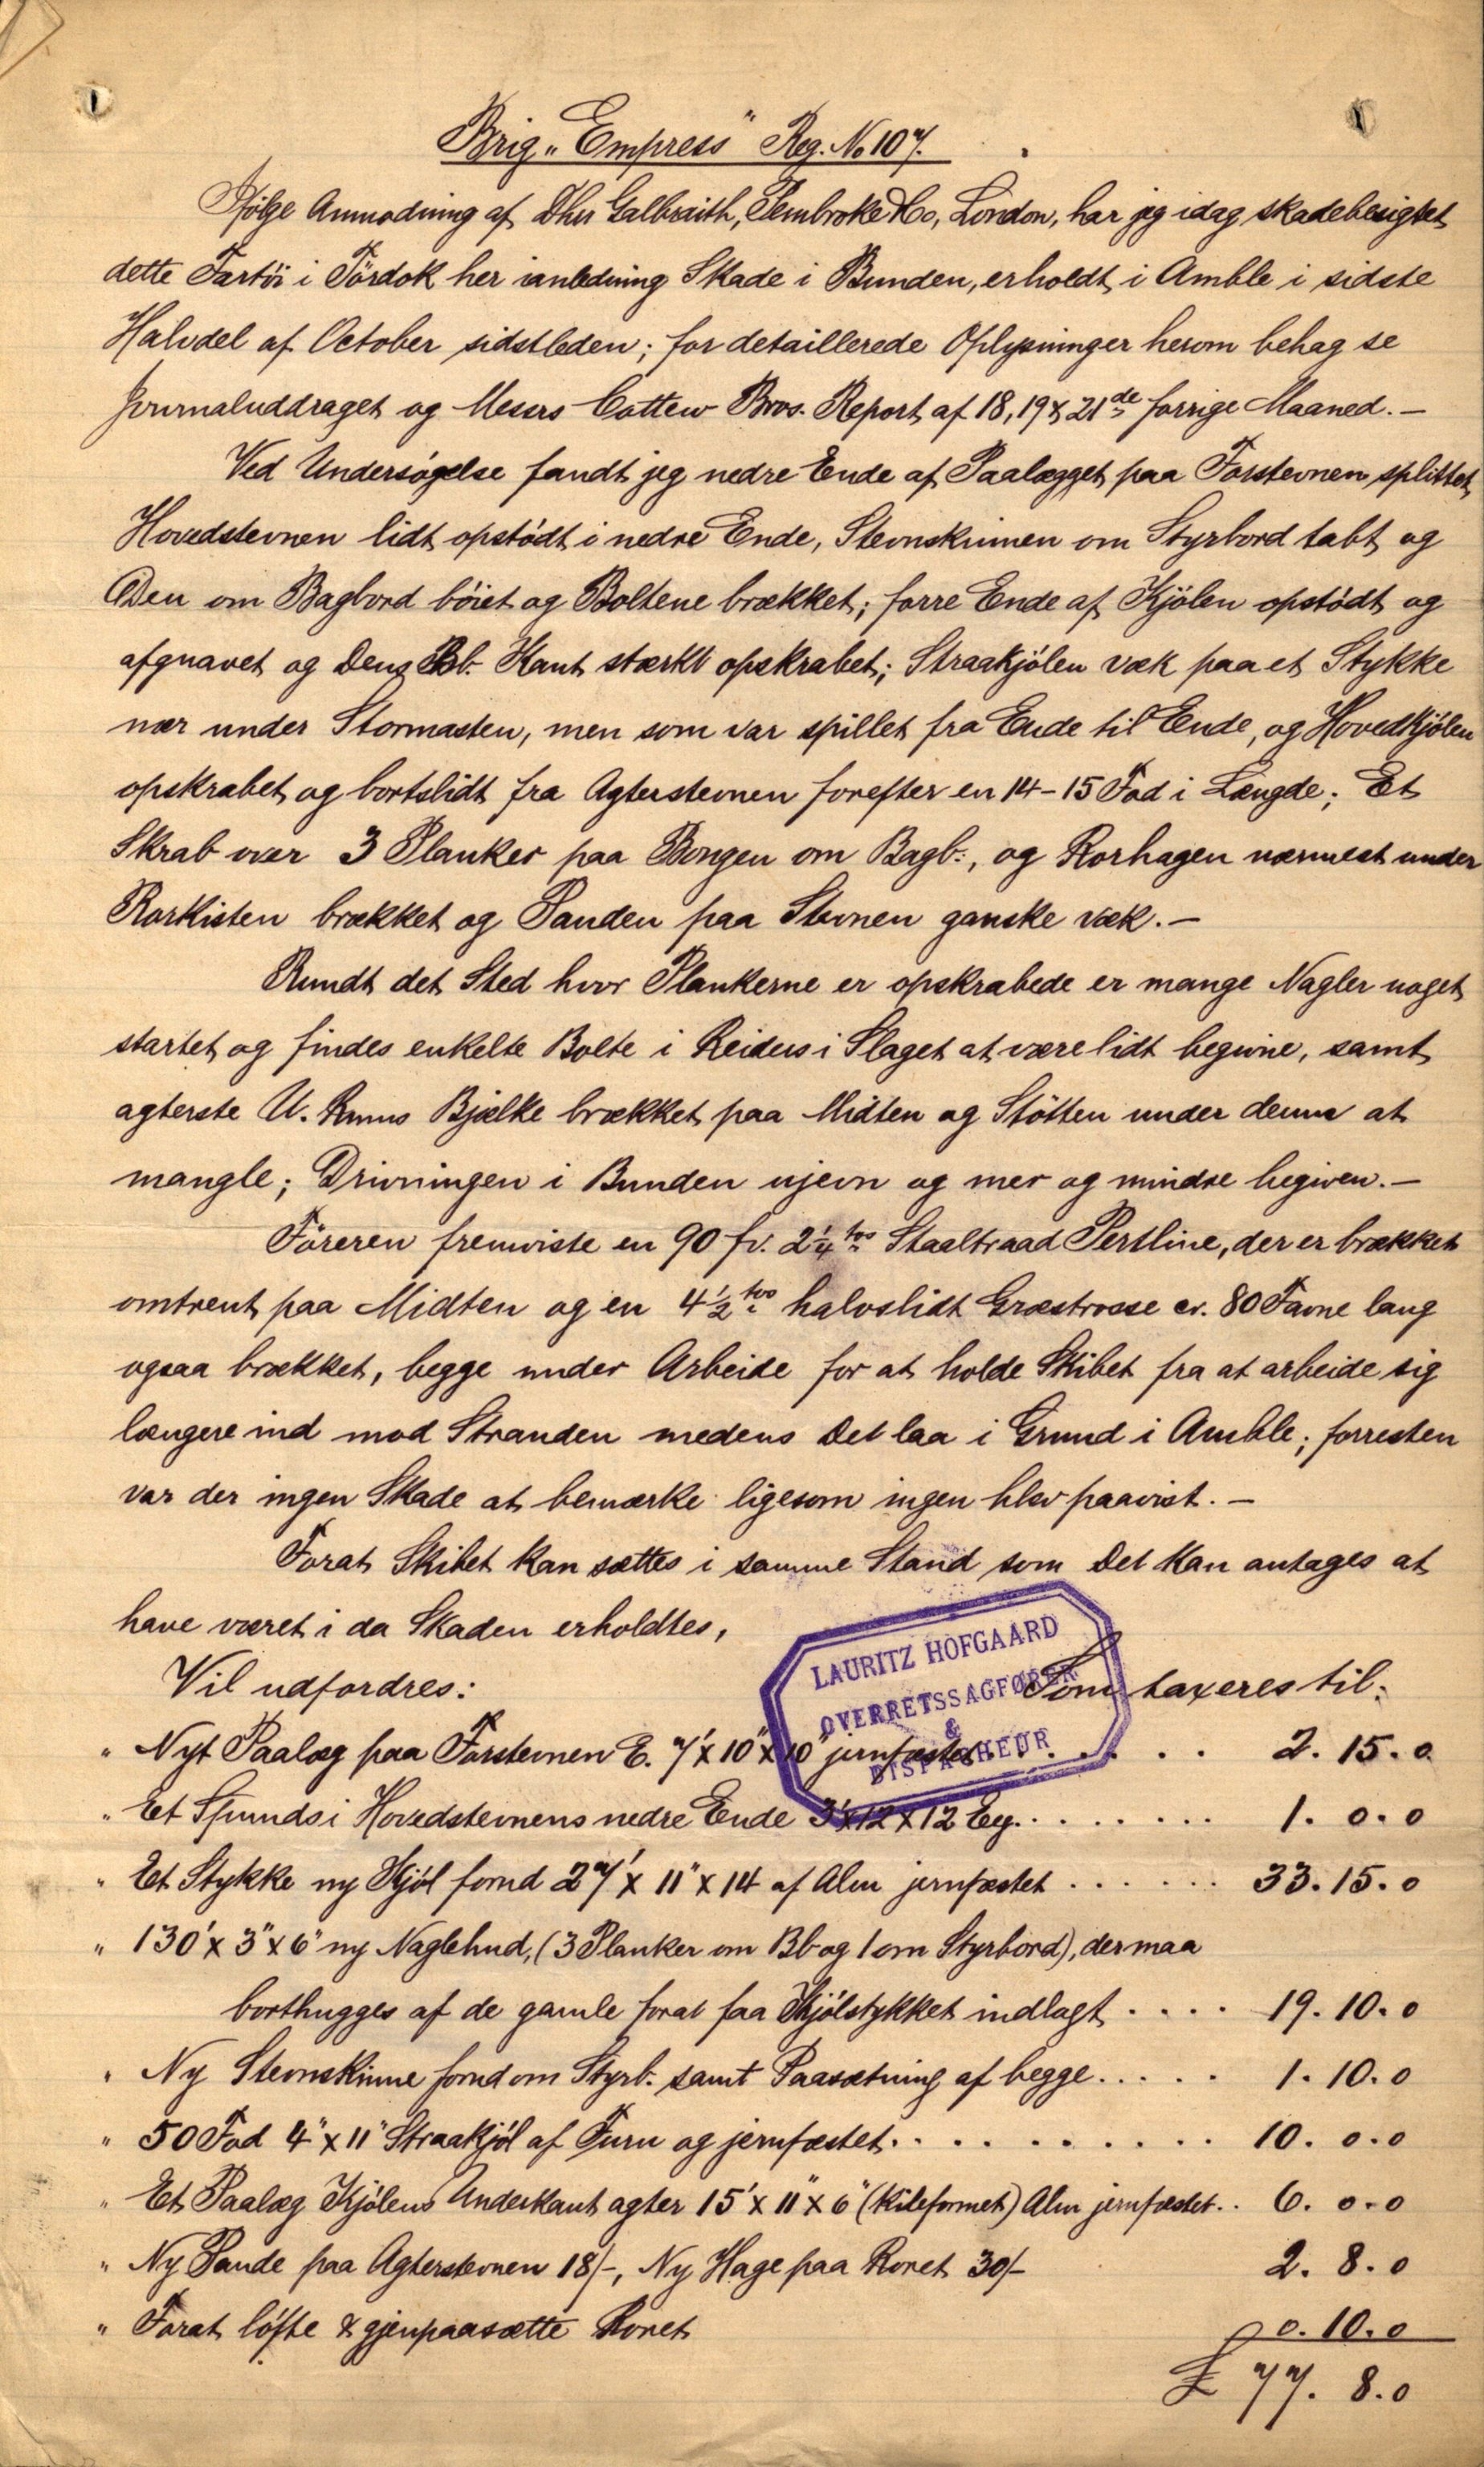 Brig „Empress" Reg. No 107.
Ifølge Anmodning af Dhrr Galbraith, Pembroke & Co, London, har jeg idag skadebesigtet
dette Fartöi i Tördok her ianledning Skade i Bunden, erholdt i Amble i sidste
Halvdel af October sidstleden; for detaillerede Oplysninger herom behag se
Journaluddraget og Messrs Cottew Bros. Report af 18, 19 & 21de forrige Maaned. —
Ved Undersögelse fandt jeg nedre Ende af Paalægget paa Forstevnen splittet,
Hovedstevnen lidt opstödt i nedre Ende, Stevnskinnen om Styrbord tabt og
Den om Bagbord böiet og Boltene brækket; forre Ende af Kjölen opstödt og
afgnavet og Dens Bb. Kant stærkt opskrabet; Straakjölen væk paa et Stykke
nær under Stormasten, men som var spillet fra Ende til Ende, og Hovedkjölen
opskrabet og bortslidt fra Agterstevnen forefter en 14-15 Fod i Længde; Et
Skrab over 3 Planker paa Bongen om Bagb:, og Rorhagen nærmest under
Rorkisten brækket og Panden paa Stevnen ganske væk. —
Rundt det Sted hvor Plankerne er opskrabede er mange Nagler noget
startet og findes enkelte Bolte i Reiders i Slaget at være lidt begivne, samt
agterste U. Rums Bjælke brækket paa Midten og Stötten under denne at
mangle; Drivningen i Bunden ujevn og mer og mindre begiven. —
Föreren fremviste en 90 fv. 2¼ ts Staaltraad Pertline, der er brækket
omtrent paa Midten og en 4½ ts halvslidt Græstrosse cr. 80 Favne lang
ogsaa brækket, begge under Arbeide for at holde Skibet fra at arbeide sig
længere ind mod Stranden medens Det laa i Grund i Amble; forresten
var der ingen Skade at bemærke ligesom ingen blev paavist. —
Forat Skibet kan sættes i samme Stand som Det kan antages at
have været i da Skaden erholdtes,
LAURITZ HOFGAARD
OVERRETSSAGFØRER
&
DISPACHEUR
Vil udfordres: Som taxeres til:
„ Nyt Paalæg paa Forstevnen E. 7' x 10" x 10" jernfæstet . . . . . 2. 15. 0
„ Et Spunds i Hovedstevnens nedre Ende 3' x 12 x 12 Eg. . . . . . . . 1. 0. 0
„ Et Stykke ny Kjöl forud 27' x 11" x 14 af Alm jernfæstet . . . . . . 33. 15. 0
„ 130' x 3" x 6" ny Naglehud, (3 Planker om Bb og 1 om Styrbord), der maa
borthugges af de gamle forat faa Kjölstykket indlagt . . . . 19. 10. 0
„ Ny Stevnskinne forud om Styrb. samt Paasætning af begge . . . . . 1. 10. 0
„ 50 Fod 4" x 11" Straakjöl af Furu og jernfæstet . . . . . . . . . . 10. 0. 0
„ Et Paalæg Kjölens Underkant agter 15' x 11" x 6" (kileformet) Alm jernfæstet . . 6. 0. 0
„ Ny Pande paa Agterstevnen 18/-, Ny Hage paa Roret 30/- 2. 8. 0
„ Forat löfte & gjenpaasætte Roret 0. 10. 0
£ 77. 8. 0